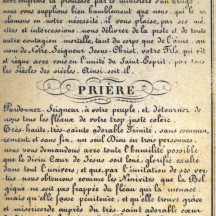 nous vous supplions bien humblement que nous, qui le
clamons en notre nécessité, il vous plaise, par ses mé-
rites et intercessions, nous délivrer de la peste et de toute
autre contagion mortelle, tant de corps que de l'âme, au
nom de Notre Seigneur Jésus-Christ, votre Fils, qui vit
et règne avec vous en l'unité du Saint-Esprit, par tous
les siècles des siècles. Ainsi soit-il.
PRIÈRE
Pardonnez, Seigneur, à votre peuple, et détournez de
nous tous les fléaux de votre trop juste colère.
Très-haute, très-sainte adorable Trinité, sans commen-
cement et sans fin, un seul Dieu en trois personnes,
nous vous demandons avec toute l'humilité possible
que le divin Cœur de Jésus soit loué, glorifié, exalté
dans tout l'univers, et que, par l'imitation de ses vertus
nous obtenions comme les Ninivites que la Bel-
gique ne soit pas frappée du fléau qui la menace,
mais qu'elle fasse pénitence, et qu'elle trouve grâce
et miséricorde auprès du très-saint adorable cœur